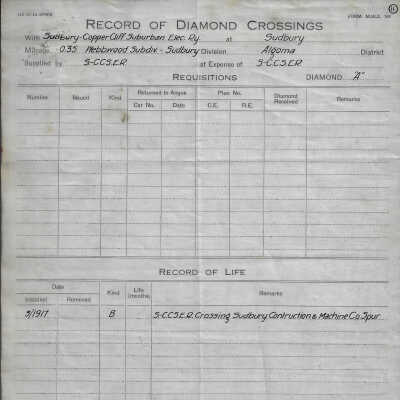 RECORD OF DIAMOND CROSSINGS
With Sudbury-Copper Cliff Suburban Elec. Ry. at Sudbury
Mileage 0.35 Webbwood Subdiv - Sudbury Division Algoma District
Supplied by S-C.C.S.E.R. at Expense of S-C.C.S.E.R.
REQUISITIONS DIAMOND "A"
Number Issued Kind Returned to Angus Plan No. Diamond Received Remarks
Car No. Date C.E. R.E.
RECORD OF LIFE
Date Kind Life (months) Remarks
Installed Removed
5/1917 B S-C.C.S.E.R. Crossing Sudbury Contruction & Machine Co. Spur